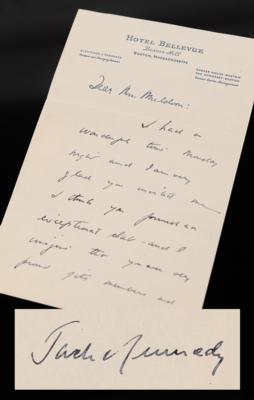 HOTEL BELLEVUE
Beacon Hill
BOSTON, MASSACHUSETTS
Dear Mr.
I had a
wonderful time Monday
night and I am very
glad you invited me
I think you formed an
exceptional club - and I
imagine that you are very
proud of its members and
Jack Kennedy